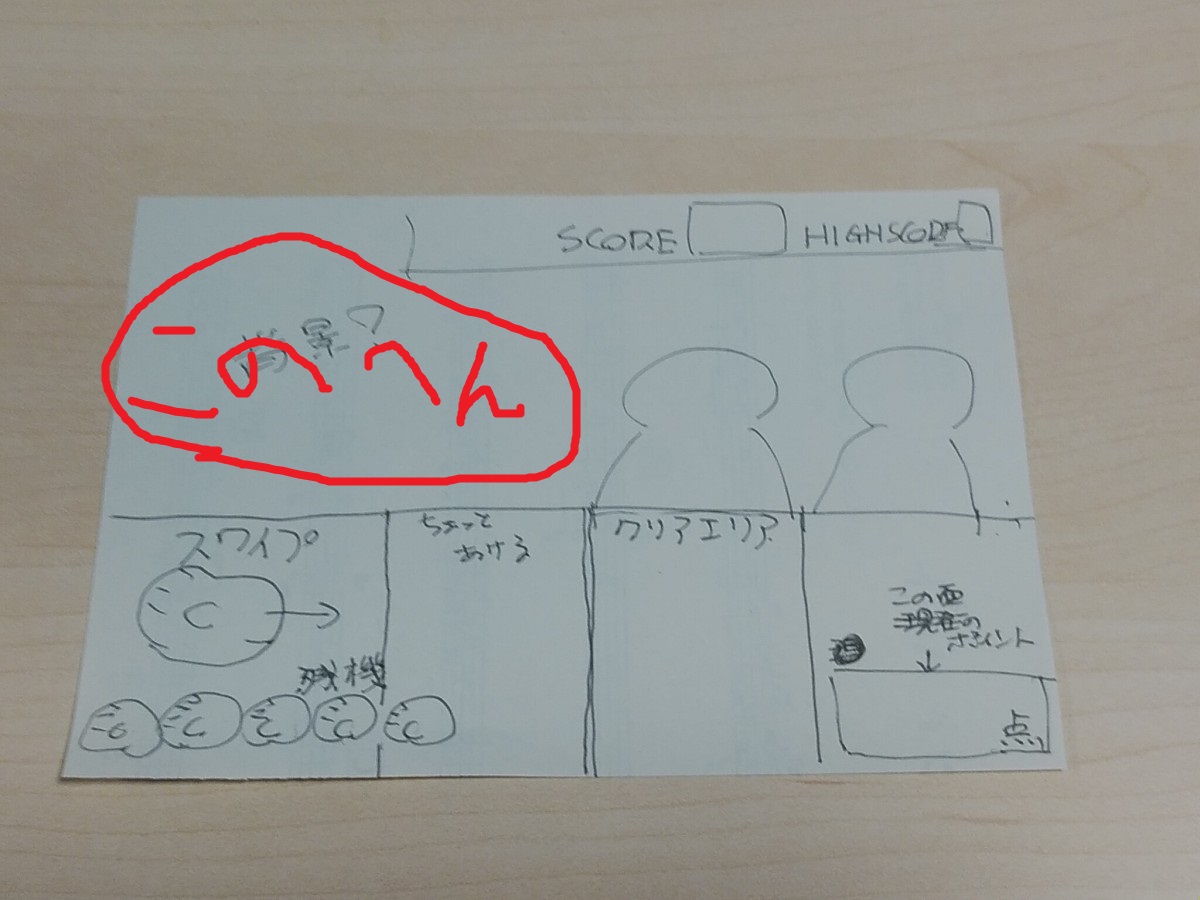 SCORE HIGHSCORE
背景?
このへん
スワイプ
ちょっと
あける
クリアエリア
C
この面
現在の
ポイント
残機
点